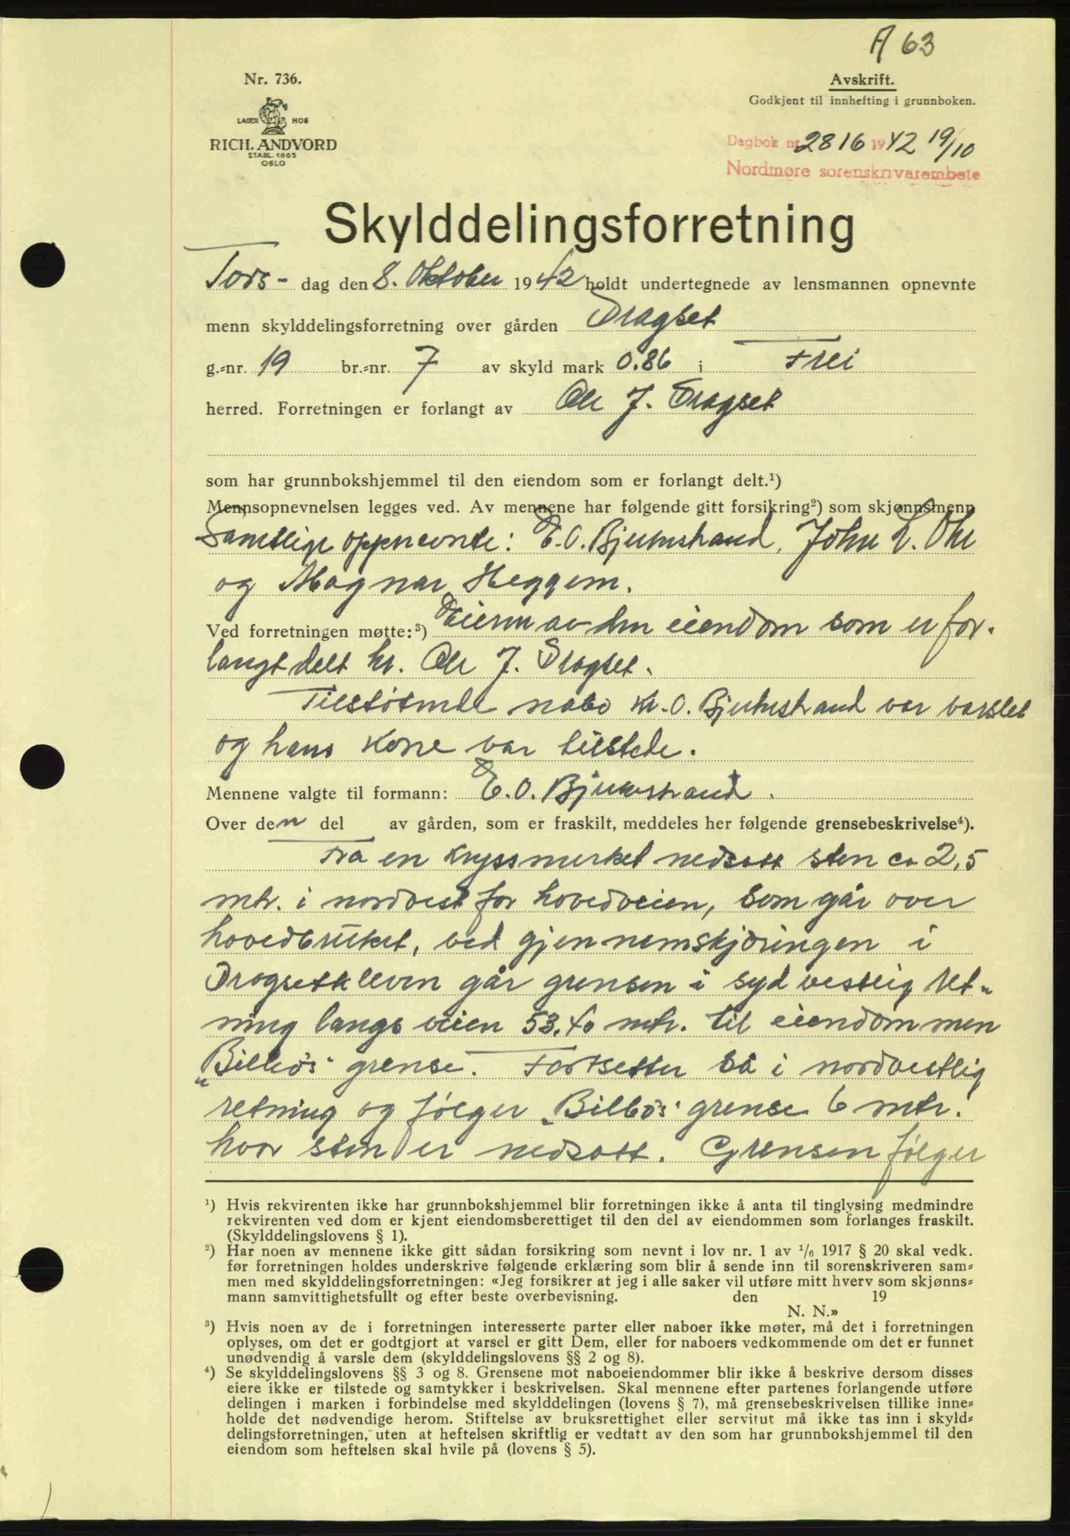 A 63
Nr. 736.
LAGER HOS
RICH. ANDVORD
ETABL. 1865
OSLO
Avskrift.
Godkjent til innhefting i grunnboken.
Dagbok nr. 2816 1942 19/10
Nordmøre sorenskriverembete
Skylddelingsforretning
Tors- dag den 8. Oktober 1942 holdt undertegnede av lensmannen opnevnte
menn skylddelingsforretning over gården Dragset
g.-nr. 19 br.-nr. 7 av skyld mark 0.86 i Frei
herred. Forretningen er forlangt av Ole J. Dragset
som har grunnbokshjemmel til den eiendom som er forlangt delt.¹)
Mennsopnevnelsen legges ved. Av mennene har følgende gitt forsikring²) som skjønnsmenn
Samtlige oppnevnte: E. O. Bjerkestrand, John L. Ohr
og Magnar Heggem.
Ved forretningen møtte:³) Eieren av den eiendom som er for-
langt delt hr. Ole J. Dragset.
Tilstøtende nabo Kr. O. Bjerkestrand var varslet
og hans kone var tilstede.
Mennene valgte til formann: E. O. Bjerkestrand.
Over den del av gården, som er fraskilt, meddeles her følgende grensebeskrivelse⁴).
Fra en kryssmerket nedsatt sten ca 2,5
mtr. i nordvest for hovedveien, som går over
hovedbruket, ved gjennemskjæringen i
Dragsetkleven går grensen i sydvestlig ret-
ning langs veien 53,40 mtr. til eiendommen
"Billeøs" grense. Fortsetter så i nordvestlig
retning og følger "Billeøs" grense 6 mtr.
hvor sten er nedsatt. Grensen følger
¹) Hvis rekvirenten ikke har grunnbokshjemmel blir forretningen ikke å anta til tinglysing medmindre
rekvirenten ved dom er kjent eiendomsberettiget til den del av eiendommen som forlanges fraskilt.
(Skylddelingslovens § 1).
²) Har noen av mennene ikke gitt sådan forsikring som nevnt i lov nr. 1 av 1/6 1917 § 20 skal vedk.
før forretningen holdes underskrive følgende erklæring som blir å sende inn til sorenskriveren sam-
men med skylddelingsforretningen: «Jeg forsikrer at jeg i alle saker vil utføre mitt hverv som skjønns-
mann samvittighetsfullt og efter beste overbevisning. den 19
N. N.»
³) Hvis noen av de i forretningen interesserte parter eller naboer ikke møter, må det i forretningen
oplyses, om det er godtgjort at varsel er gitt Dem, eller for naboers vedkommende om det er funnet
unødvendig å varsle dem (skylddelingslovens §§ 2 og 8).
⁴) Se skylddelingslovens §§ 3 og 8. Grensene mot naboeiendommer blir ikke å beskrive dersom disses
eiere ikke er tilstede og samtykker i beskrivelsen. Skal mennene efter partenes forlangende utføre
delingen i marken i forbindelse med skylddelingen (lovens § 7), må grensebeskrivelsen tillike inne-
holde det nødvendige herom. Stiftelse av bruksrettighet eller servitut må ikke tas inn i skyld-
delingsforretningen, uten at heftelsen skriftlig er vedtatt av den som har grunnbokshjemmel til den
eiendom som heftelsen skal hvile på (lovens § 5).